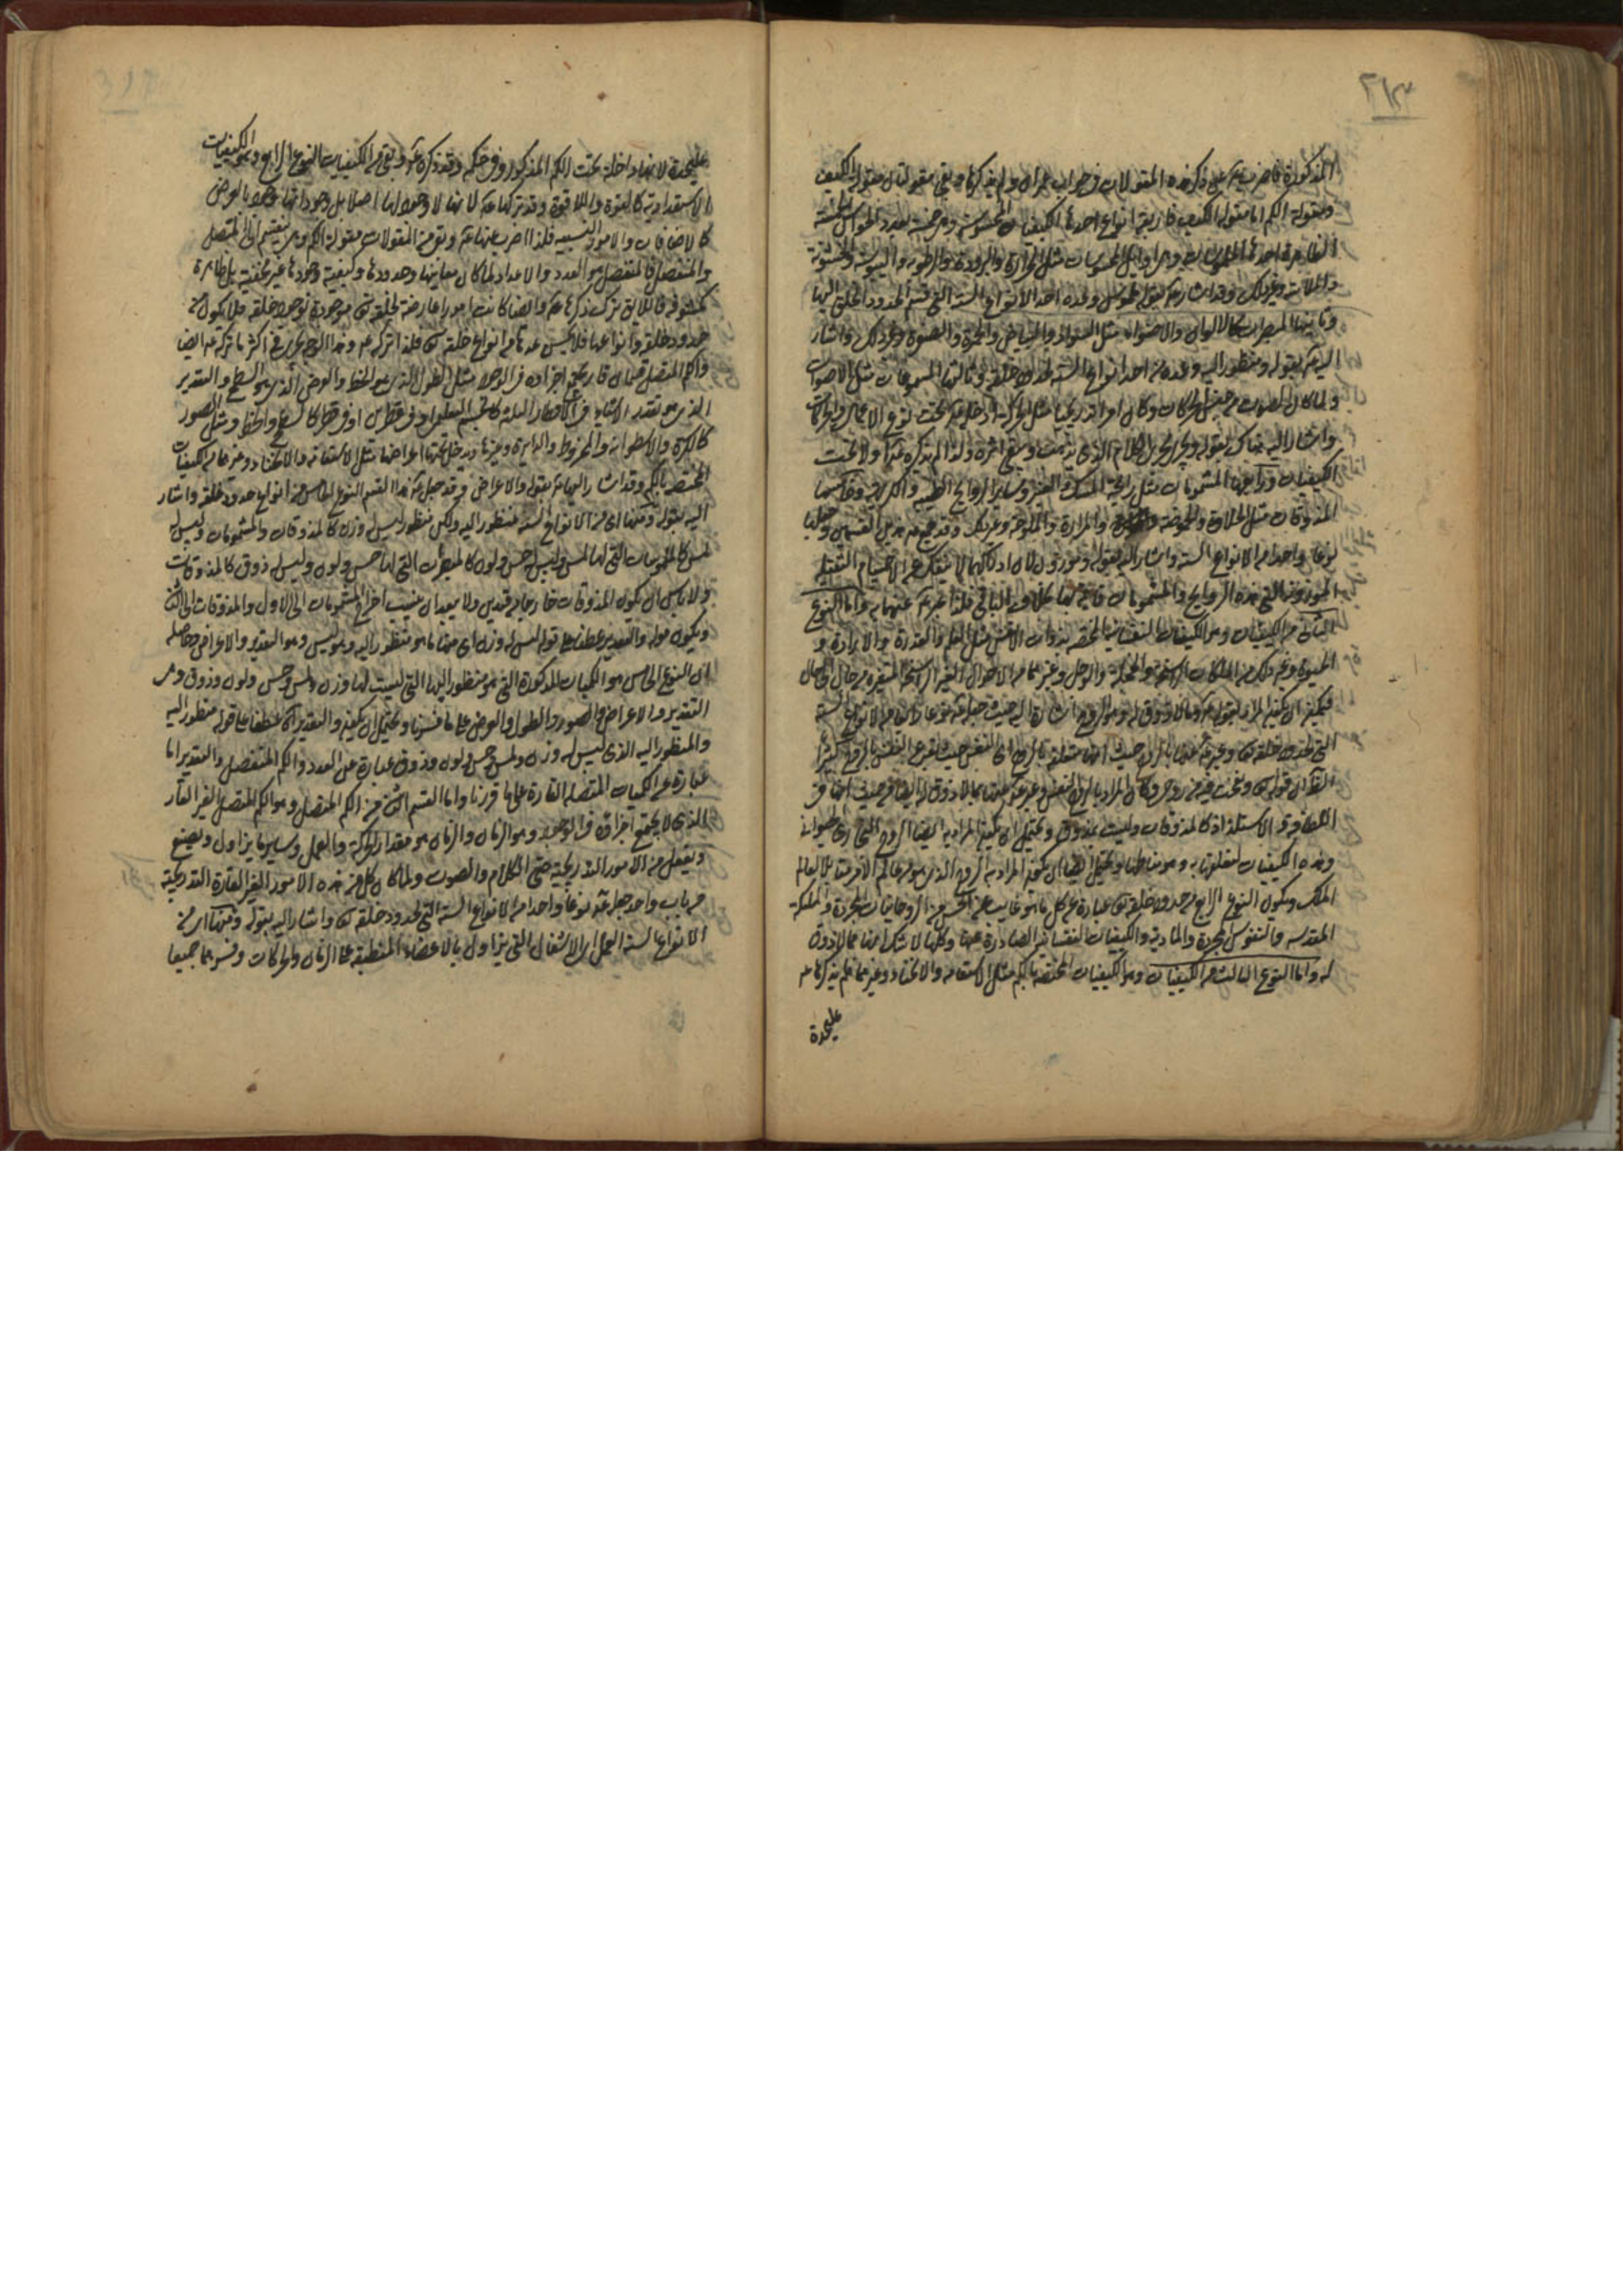 ٣١٣
المذكورة فاضرب عن ذكر هذه المقولات في جواب عمران ولم يذكرها وبقي مقولتان مقولة الكيف
ومقولة الكم اما مقولة الكيف فاربعة انواع احدها الكيفيات المحسوسة وهي خمسة بعدد الحواس الخمسة
الظاهرة احدها الملموسات وهي اوايل المحسوسات مثل الحرارة والبرودة والرطوبة واليبوسة والخشونة
والملاسة وغير ذلك وقد اشار بقوله ملموس وعده احد الأنواع الستة التي قسم الحدود الخلق اليها
وثانيها المبصرات كالالوان والاضواء مثل السواد والبياض والحمرة والصفرة وغير ذلك واشار
اليه بقوله ومنظور اليه وعده من احد انواع الستة لحدود خلقه وثالثها المسموعات مثل الاصوات
ولما كان الصوت من قبيل الحركات وكان امرا تدريجيا مثل الحركة ادخله تحت نوع الاعمال والحركات
واشار اليه هناك بقوله الكلام الذي يذهب ويبقى اثره ولذا لم يذكره ولا تحت
الكيفيات ورابعها المشمومات مثل رايحة المسك والعنبر وساير الروايح الطيبة والكريهة وخامسها
المذوقات مثل الحلاوة والحموضة والمرارة والملوحة وغير ذلك وقد جمع هذين القسمين وجعلها
نوعا واحدا من الانواع الستة واشار اليه بقوله وموزون لان ادراكهما لا ينفك عن الاجسام الثقيلة
الموزونة التي هذه الروايح والمشمومات قائمة بها بخلاف البواقي فلذا عبر عنهما به واما النوع
الثاني من الكيفيات وهو الكيفيات النفسانية المختصة بذوات الانفس مثل العلم والقدرة والارادة و
الحيوة وغير ذلك من الملكات الراسخة والخجلة والوجل وغيرهما من الاحوال الغير الراسخة المتغيرة من حال الى حال
فيمكن ان يكون المراد بقوله وما لا ذوق له وهو الروح اشارة اليه حيث جعله نوعا رابعا من الانواع الستة
التي لحدود خلقه وعبر عنها بالروح حيث انها متعلقة بالروح اي النفس حيث يقع عن النفس بالروح كثيرا
القرآن قوله ونفخت فيه من روحي وكان المراد بالروح النفس وعبر عنها بما لا ذوق له ايضا من حيث انها في
اللطافة والاستلذاذ كالمذوقات وليست بمذوق ويحتمل ان يكون المراد به ايضا الروح البخاري الحيواني
وهذه الكيفيات متعلقة به وهو مناطها ويحتمل ايضا ان يكون المراد به الروح الذي هو من عالم الامر مقابلا لعالم
الملك ويكون النوع الرابع من حدود خلقه عبارة عن كل ما هو غايب عن الحس من الروحانيات المجردة والملائكة
المقدسة والنفوس المجردة والمادية والكيفيات النفسانية الصادرة عنها وكلها لا شك انها مما لا ذوق
له واما النوع الثالث من الكيفيات وهو الكيفيات المختصة بالكم مثل الاستقامة والانحناء وغيرهما فلم يذكرها
عليحدة
عليحدة لانها داخلة تحت الكم المذكور وفي حكمه وقد ذكره وبقي من الكيفيات النوع الرابع وهو الكيفيات
الاستعدادية كالقوة واللاقوة وقد تركها لانها لا وجود لها اصلا بل وجودها وجود بالعرض
كالاضافات والامور النسبية فلذا اضرب عنها وبقي من المقولات مقولة الكم وهي ينقسم الى المتصل
والمنفصل فالمنفصل هو العدد والاعداد لما كان معانيها وحدودها وكيفية وجودها غير مخفية بل ظاهرة
مكشوفة فاللايق ترك ذكرها وايضا كانت امورا عارضة لخلقه موجودة بوجود خلقه فلا يكون من
حدود خلقه وانواعها فلا يحسن عدها من انواع خلقه فلذا تركه وهذا الوجه يجري في اكثر ما تركه ايضا
والكم المتصل قسمان قار يجتمع اجزاؤه في الوجود مثل الطول الذي هو الخط والعرض الذي هو السطح والتقدير
الذي هو تقدير الاشياء في الاقطار الثلثة كالجسم التعليمي او في قطرين او في قطر كالسطح والخط ومثل الصور
كالكرة والاسطوانة والمخروط والدايرة وغيرها ويدخل تحتها اعراضها مثل الاستقامة والانحناء وغيرها من الكيفيات
المختصة بالكم وقد اشار اليها بقوله والاعراض وقد جعل هذا القسم النوع الخامس من انواع حدود خلقه واشار
اليه بقوله ومنها اي من الانواع الستة منظور اليه ولكن منظور ليس وزن كالمذوقات والمشمومات وليس له
لمس كالملموسات التي لها لمس وليس له حس ولون كالمبصرات التي لها حس ولون وليس له ذوق كالمذوقات
ولا باس ان يكون المذوقات خارجا من قيدين ولا يبعد ان ينسب اخراج المشمومات الى الاول والمذوقات الى الثاني
ويكون قوله والتقدير عطفا على قوله ليس له وزن اي منها ما هو منظور اليه وليس وهو التقدير والاعراض وحاصله
ان النوع الخامس هو الكميات المذكورة التي هو منظور اليها التي ليست لها وزن ولمس وحس ولون وذوق وهي
التقدير والاعراض والصور والطول والعرض على ما فسرنا ويحتمل ان يكون والتقدير عطفا على قوله منظور اليه
والمنظور اليه الذي ليس له وزن ولمس وحس ولون وذوق عبارة عن العدد والكم المنفصل والتقدير اما
عبارة عن الكميات المتصلة القارة على ما قررنا واما القسم الثاني من الكم المتصل وهو الكم المتصل الغير القار
الذي لا يجتمع اجزاؤه في الوجود وهو الزمان والزمان هو مقدار الحركة والعمل وساير ما يزاول ويصنع
ويفعل من الامور التدريجية حتى الكلام والصوت ولما كان كل من هذه الامور الغير القارة التدريجية
من باب واحد جعله نوعا واحدا من الانواع الستة التي لحدود خلقه واشار اليه بقوله ومنها اي من
الانواع الستة العمل اي الاشغال التي يزاول بالاعضاء المنطبقة على الزمان والحركات وفسرهما جميعا